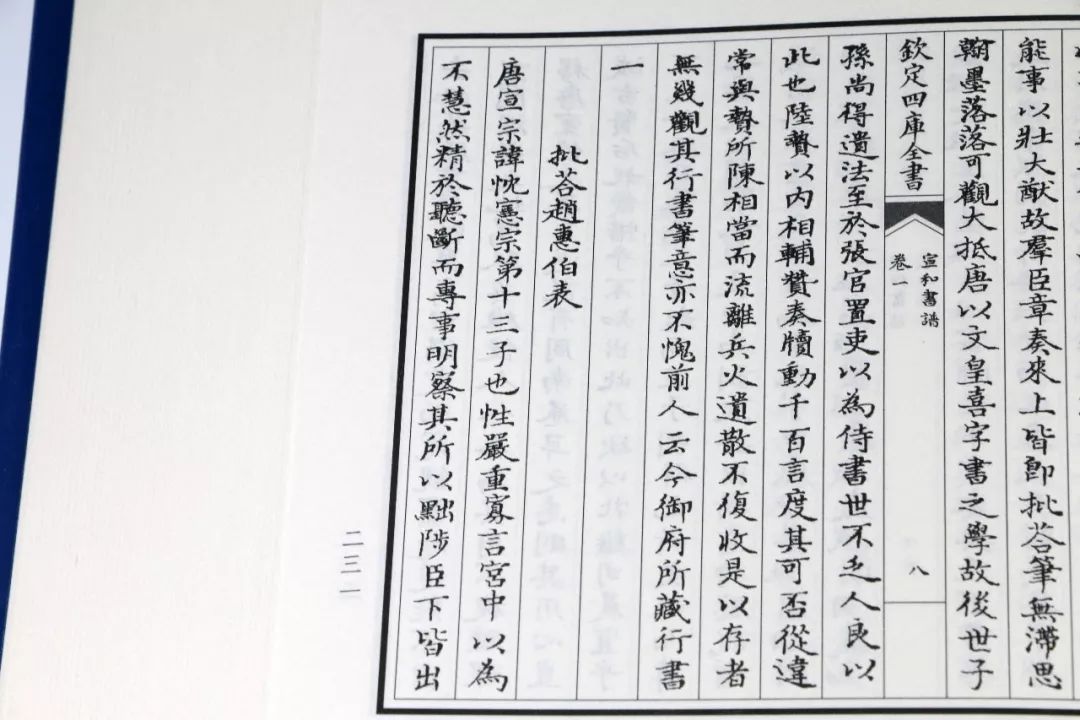 能事以壯大猷故羣臣章奏來上皆即批荅筆無滯思
翰墨落落可觀大抵唐以文皇喜字書之學故後世子
欽定四庫全書
宣和書譜
卷一
八
孫尚得遺法至於張官置吏以為侍書世不乏人良以
此也陸贄以内相輔贊奏牘動千百言度其可否從違
常與贄所陳相當而流離兵火遺散不復收是以存者
無幾觀其行書筆意亦不愧前人云今御府所藏行書
一
批荅趙惠伯表
唐宣宗諱忱憲宗第十三子也性嚴重寡言宮中以為
不慧然精於聽斷而專事明察其所以黜陟臣下皆出
二三一